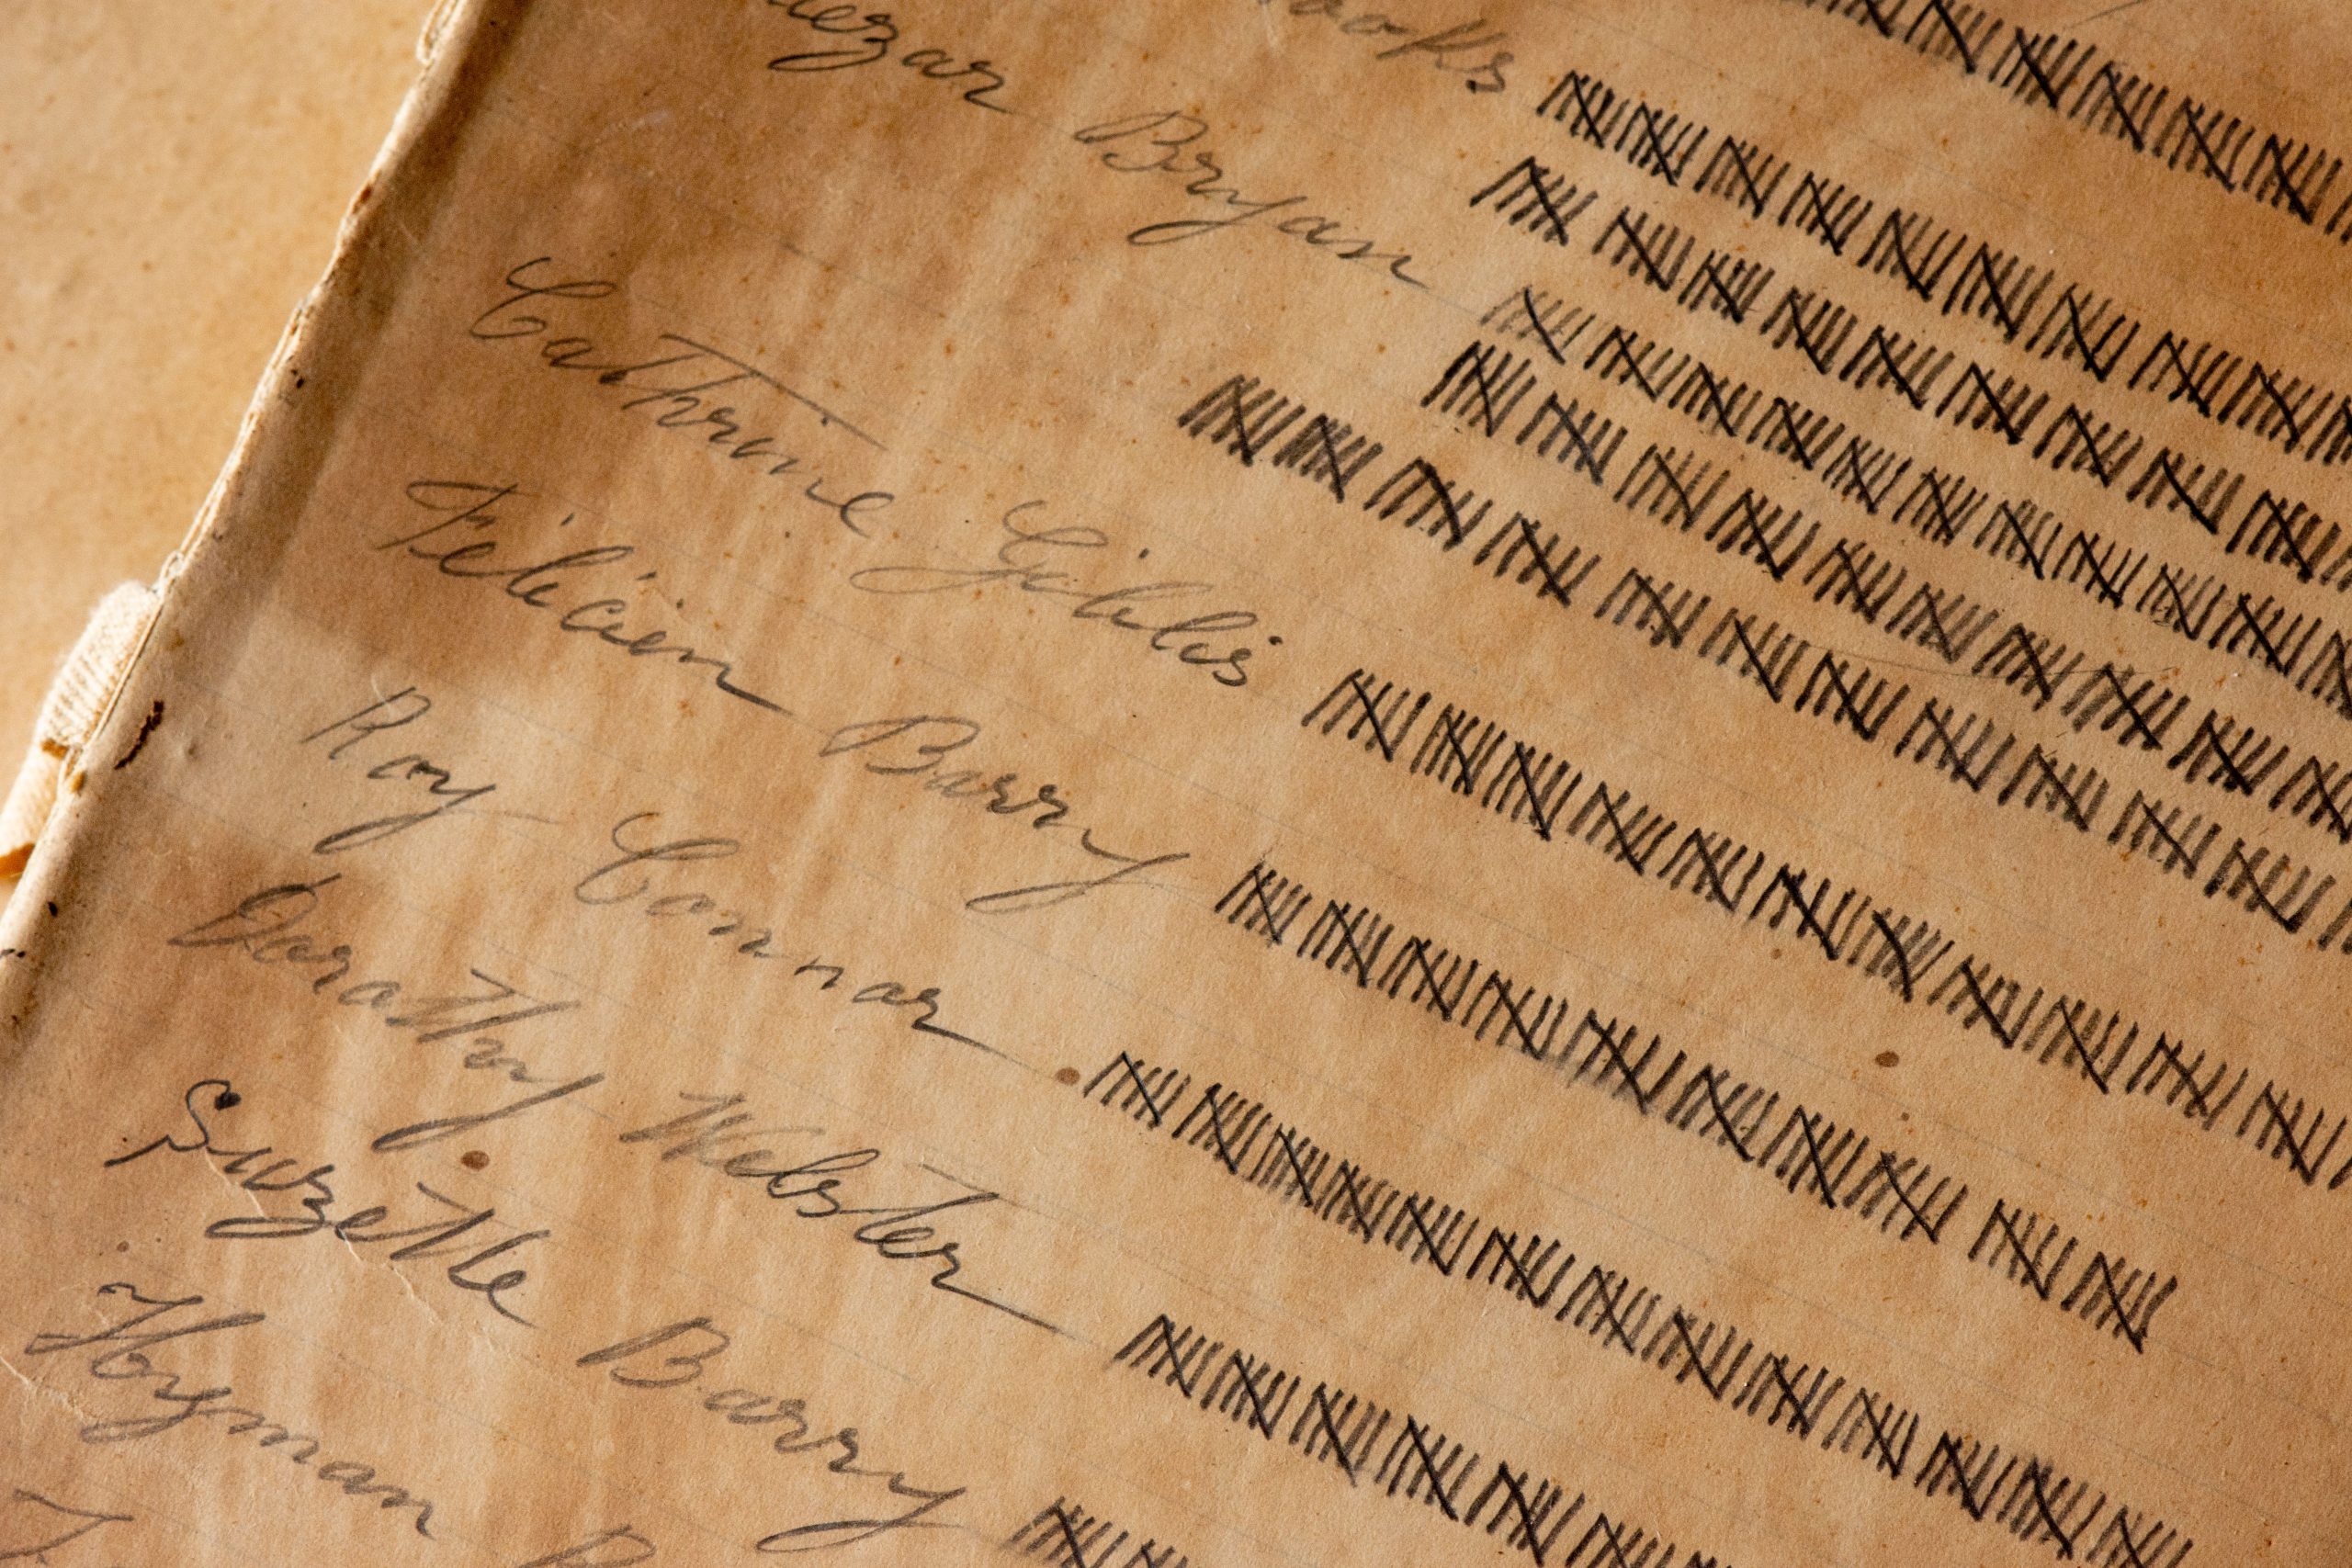 Bryan
Cathrine Gillis
Felicien Barry
Roy Connar
Dorathy Webster
Suzette Barry
Hoyman